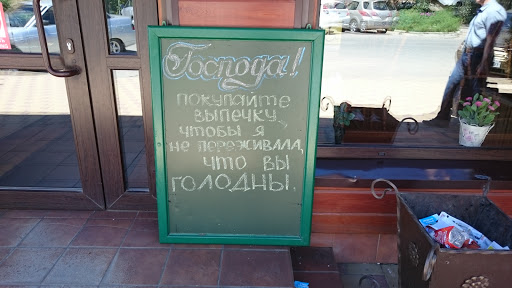 Господа!
ПОКУПАЙТЕ
ВЫПЕЧКУ,
ЧТОБЫ Я
НЕ ПЕРЕЖИВАЛА,
ЧТО ВЫ
ГОЛОДНЫ.